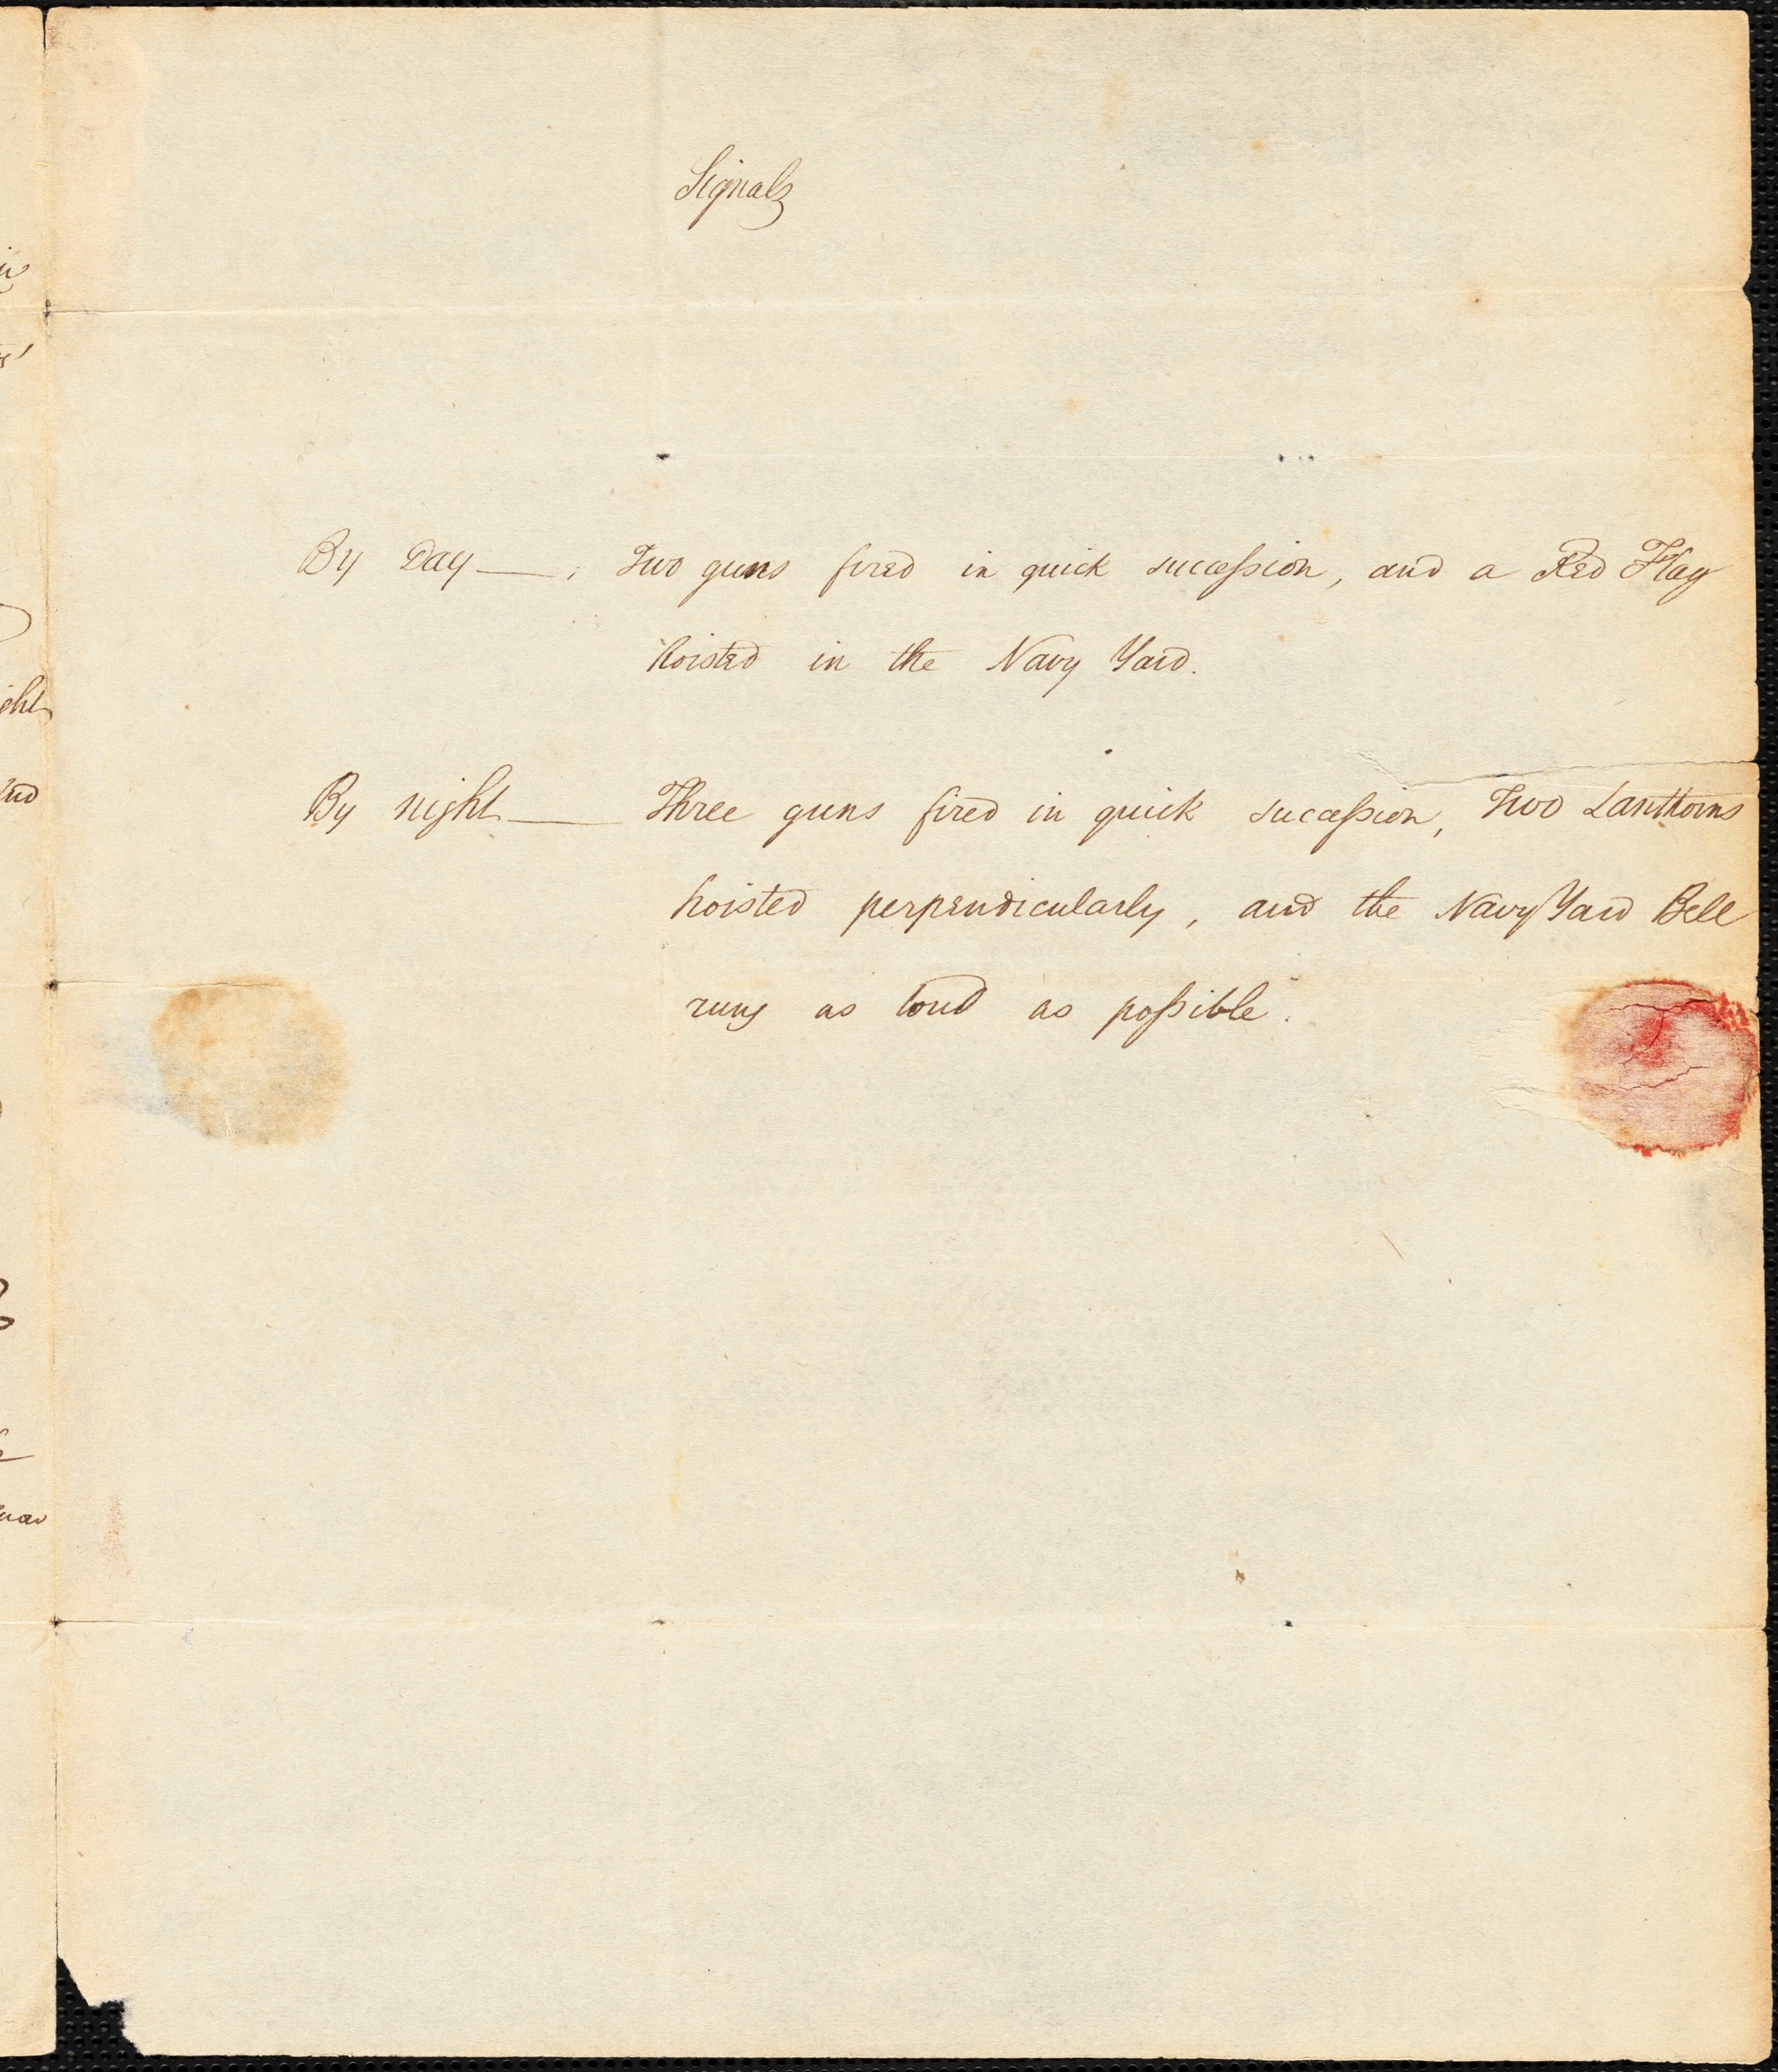 Signals
By Day — Two guns fired in quick succession, and a Red Flag
hoisted in the Navy Yard.
By night — Three guns fired in quick succession, Two Lanthorns
hoisted perpendicularly, and the Navy Yard Bell
rung as loud as possible.